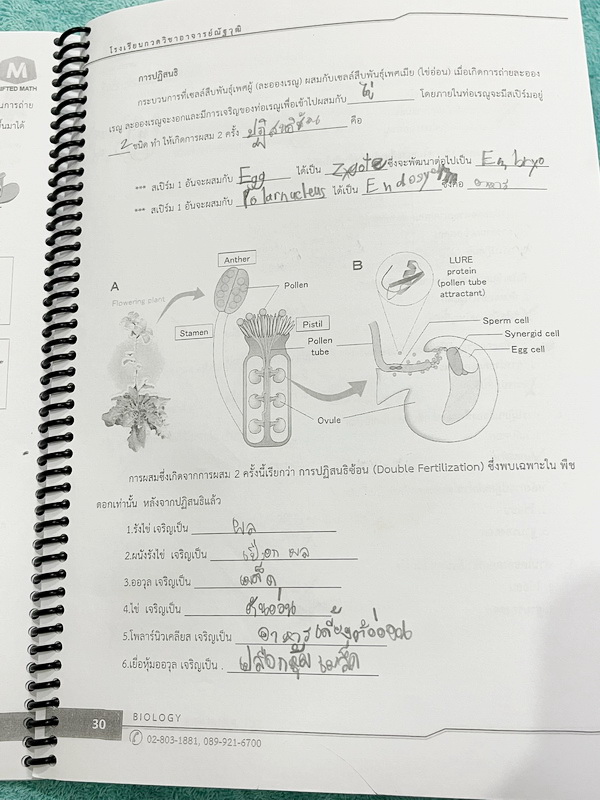 M
IFTED MATH
โรงเรียนกวดวิชาอาจารย์ณัฐวุฒิ
การปฏิสนธิ
กระบวนการที่เซลล์สืบพันธุ์เพศผู้ (ละอองเรณู) ผสมกับเซลล์สืบพันธุ์เพศเมีย (ไข่อ่อน) เมื่อเกิดการถ่ายละออง
เรณู ละอองเรณูจะงอกและมีการเจริญของท่อเรณูเพื่อเข้าไปผสมกับ ไข่ โดยภายในท่อเรณูจะมีสเปิร์มอยู่
2 ชนิด ทำ ให้เกิดการผสม 2 ครั้ง ปฏิสนธิซ้อน คือ
*** สเปิร์ม 1 อันจะผสมกับ Egg ได้เป็น Zygote ซึ่งจะพัฒนาต่อไปเป็น Embryo
*** สเปิร์ม 1 อันจะผสมกับ Polarnucleus ได้เป็น ซึ่งคือ อาหาร
A
Flowering plant
Anther
Pollen
Stamen
Pistil
Pollen tube
Ovule
B
LURE
protein
(pollen tube
attractant)
Sperm cell
Synergid cell
Egg cell
การผสมซึ่งเกิดจากการผสม 2 ครั้งนี้เรียกว่า การปฏิสนธิซ้อน (Double Fertilization) ซึ่งพบเฉพาะใน พืช
ดอกเท่านั้น หลังจากปฏิสนธิแล้ว
1.รังไข่ เจริญเป็น ผล
2.ผนังรังไข่ เจริญเป็น เปลือก ผล
3.ออวุล เจริญเป็น เมล็ด
4.ไข่ เจริญเป็น ต้นอ่อน
5.โพลาร์นิวเคลียส เจริญเป็น อาหารเลี้ยงต้นอ่อน
6.เยื่อหุ้มออวุล เจริญเป็น . เปลือกหุ้ม เมล็ด
30
BIOLOGY
02-803-1881, 089-921-6700